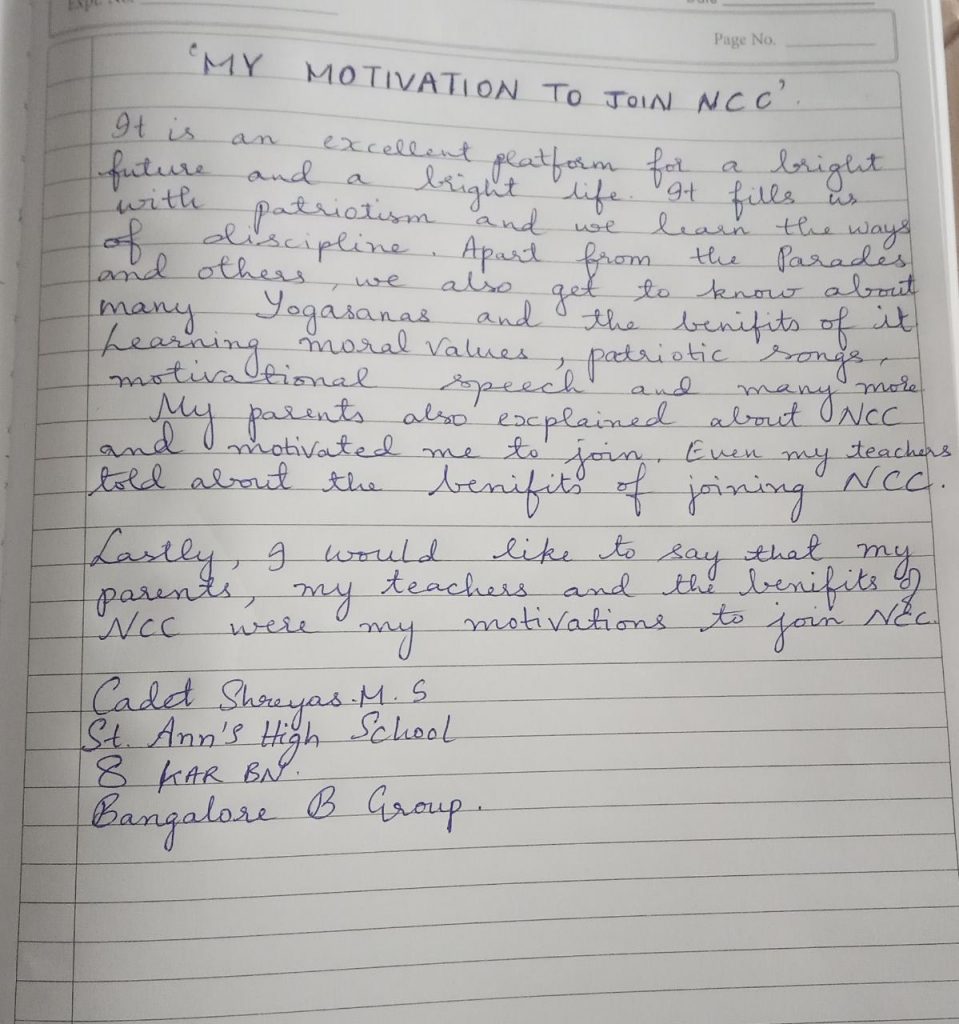 Expt. No.
Date
Page No.
'MY MOTIVATION TO JOIN NCC'.
It is an excellent platform for a bright
future and a bright life. It fills us
with patriotism and we learn the ways
of discipline. Apart from the Parades
and others, we also get to know about
many Yogasanas and the benifits of it
Learning moral values, patriotic songs,
motivational speech and many more.
My parents also explained about NCC
and motivated me to join. Even my teachers
told about the benifits of joining NCC.
Lastly, I would like to say that my
parents, my teachers and the benifits of
NCC were my motivations to join NCC.
Cadet Shreyas.M.S
St. Ann's High School
8 KAR BN.
Bangalore B Group.